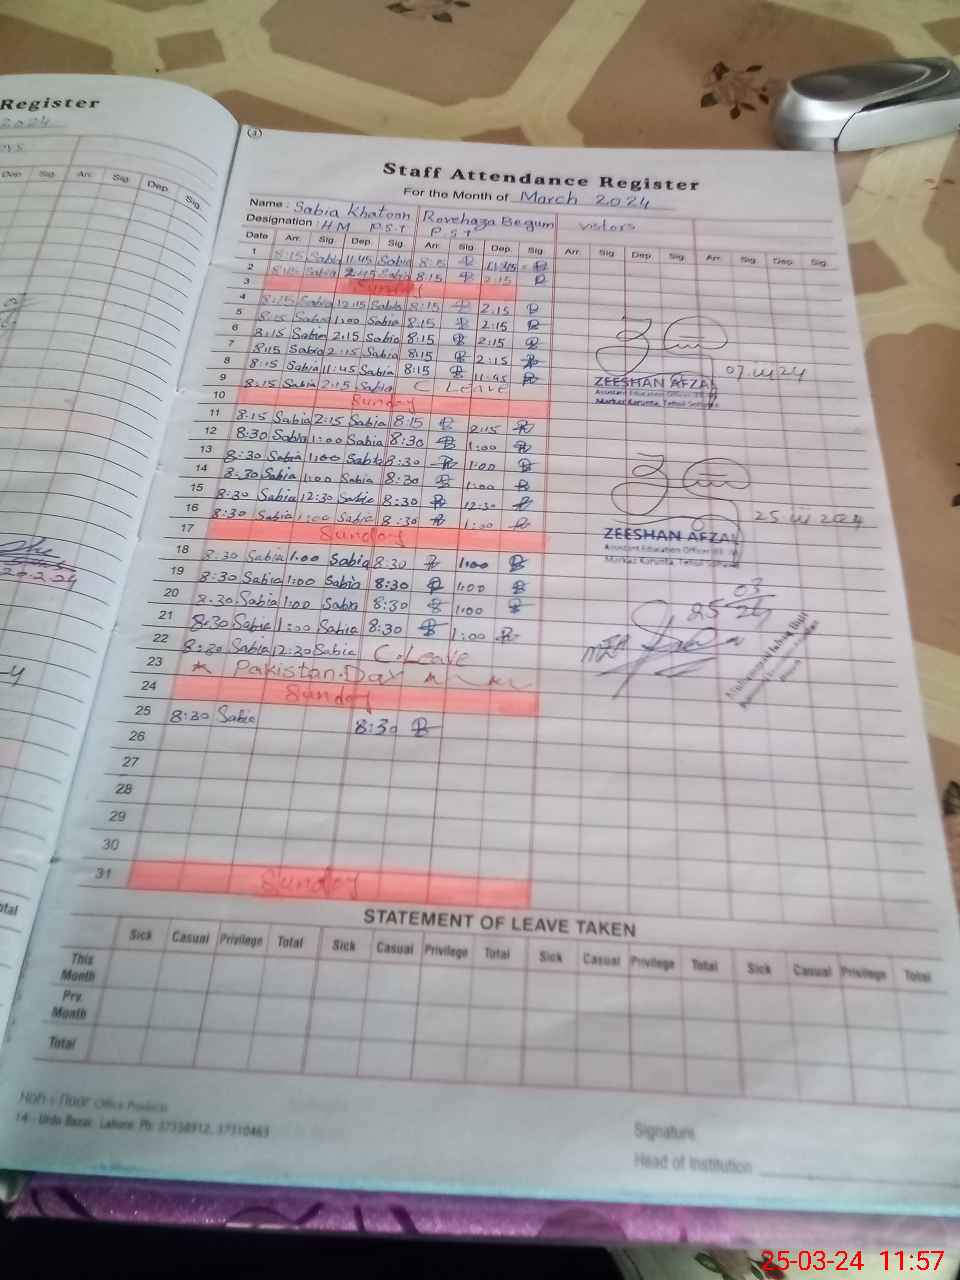 Register
2024
Dep. Sig. Arr. Sig. Dep. Sig.
20-2-24
(3)
Staff Attendance Register
For the Month of March 2024
Name : Sabia Khatoon Begum visitors
Designation : HM P.S.T P.S.T
Date Arr. Sig. Dep. Sig. Arr. Sig. Dep. Sig. Arr. Sig. Dep. Sig. Arr. Sig. Dep. Sig.
1 8:15 Sabia 11:45 Sabia 8:15 11:45
2 8:15 Sabia 2:15 Sabia 8:15 2:15
3 Sunday
4 8:15 Sabia 12:15 Sabia 8:15 2:15
5 8:15 Sabia 1:00 Sabia 8:15 2:15
6 8:15 Sabia 2:15 Sabia 8:15 2:15
7 8:15 Sabia 2:15 Sabia 8:15 2:15
8 8:15 Sabia 11:45 Sabia 8:15 11:45
9 8:15 Sabia 2:15 Sabia C Leave
10 Sunday
11 8:15 Sabia 2:15 Sabia 8:15 2:15
12 8:30 Sabia 1:00 Sabia 8:30 1:00
13 8:30 Sabia 1:00 Sabia 8:30 1:00
14 8:30 Sabia 1:00 Sabia 8:30 1:00
15 8:30 Sabia 12:30 Sabia 8:30 12:30
16 8:30 Sabia 1:00 Sabia 8:30 1:00
17 Sunday
18 8:30 Sabia 1:00 Sabia 8:30 1:00
19 8:30 Sabia 1:00 Sabia 8:30 1:00
20 8:30 Sabia 1:00 Sabia 8:30 1:00
21 8:30 Sabia 1:00 Sabia 8:30 1:00
22 8:30 Sabia 12:30 Sabia C.Leave
23 Pakistan Day
24 Sunday
25 8:30 Sabia 8:30
26
27
28
29
30
31 Sunday
ZEESHAN AFZAL
Assistant Education Officer
Markaz Karunta, Tehsil
ZEESHAN AFZAL
Assistant Education Officer
Markaz Karunta, Tehsil
25 03 24
STATEMENT OF LEAVE TAKEN
Sick Casual Privilege Total Sick Casual Privilege Total Sick Casual Privilege Total Sick Casual Privilege Total
This Month
Prv. Month
Total
Office Products
14 - Urdu Bazar, Lahore. Ph: 37358912, 37310463
Signature
Head of Institution
25-03-24 11:57